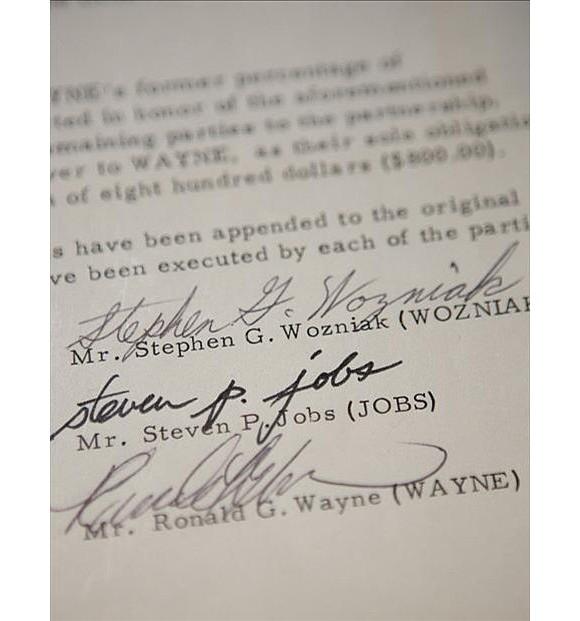 WAYNE's former percentage of
ted in honor of the aforementioned
maining parties to the partnership,
ver to WAYNE, as their sole obligatio
of eight hundred dollars ($800.00).
s have been appended to the original
ve been executed by each of the parti
Stephen G. Wozniak
Mr. Stephen G. Wozniak (WOZNIAK
steven p. jobs
Mr. Steven P. Jobs (JOBS)
Mr. Ronald G. Wayne (WAYNE)